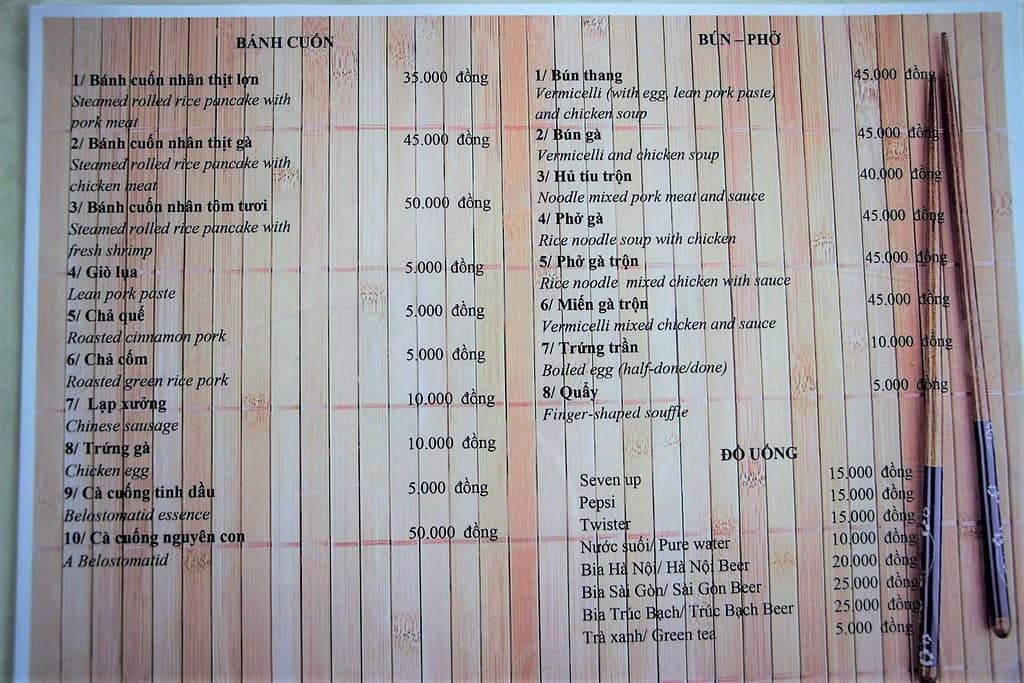 BÁNH CUÓN
1/ Bánh cuốn nhân thịt lợn 35.000 đồng
Steamed rolled rice pancake with
pork meat
2/ Bánh cuốn nhân thịt gà 45.000 đồng
Steamed rolled rice pancake with
chicken meat
3/ Bánh cuốn nhân tôm tươi 50.000 đồng
Steamed rolled rice pancake with
fresh shrimp
4/ Giò lụa 5.000 đồng
Lean pork paste
5/ Chả quế 5.000 đồng
Roasted cinnamon pork
6/ Chả cốm 5.000 đồng
Roasted green rice pork
7/ Lạp xưởng 10.000 đồng
Chinese sausage
8/ Trứng gà 10.000 đồng
Chicken egg
9/ Cà cuống tinh dầu 5.000 đồng
Belostomatid essence
10/ Cà cuống nguyên con 50.000 đồng
A Belostomatid
BÚN – PHỞ
1/ Bún thang 45.000 đồng
Vermicelli (with egg, lean pork paste)
and chicken soup
2/ Bún gà 45.000 đồng
Vermicelli and chicken soup
3/ Hủ tíu trộn 40.000 đồng
Noodle mixed pork meat and sauce
4/ Phở gà 45.000 đồng
Rice noodle soup with chicken
5/ Phở gà trộn 45.000 đồng
Rice noodle mixed chicken with sauce
6/ Miến gà trộn 45.000 đồng
Vermicelli mixed chicken and sauce
7/ Trứng trần 10.000 đồng
Boiled egg (half-done/done)
8/ Quẩy 5.000 đồng
Finger-shaped souffle
ĐỒ UỐNG
Seven up 15.000 đồng
Pepsi 15.000 đồng
Twister 15.000 đồng
Nước suối/ Pure water 10.000 đồng
Bia Hà Nội/ Hà Nội Beer 20.000 đồng
Bia Sài Gòn/ Sài Gòn Beer 25.000 đồng
Bia Trúc Bạch/ Trúc Bạch Beer 25.000 đồng
Trà xanh/ Green tea 5.000 đồng